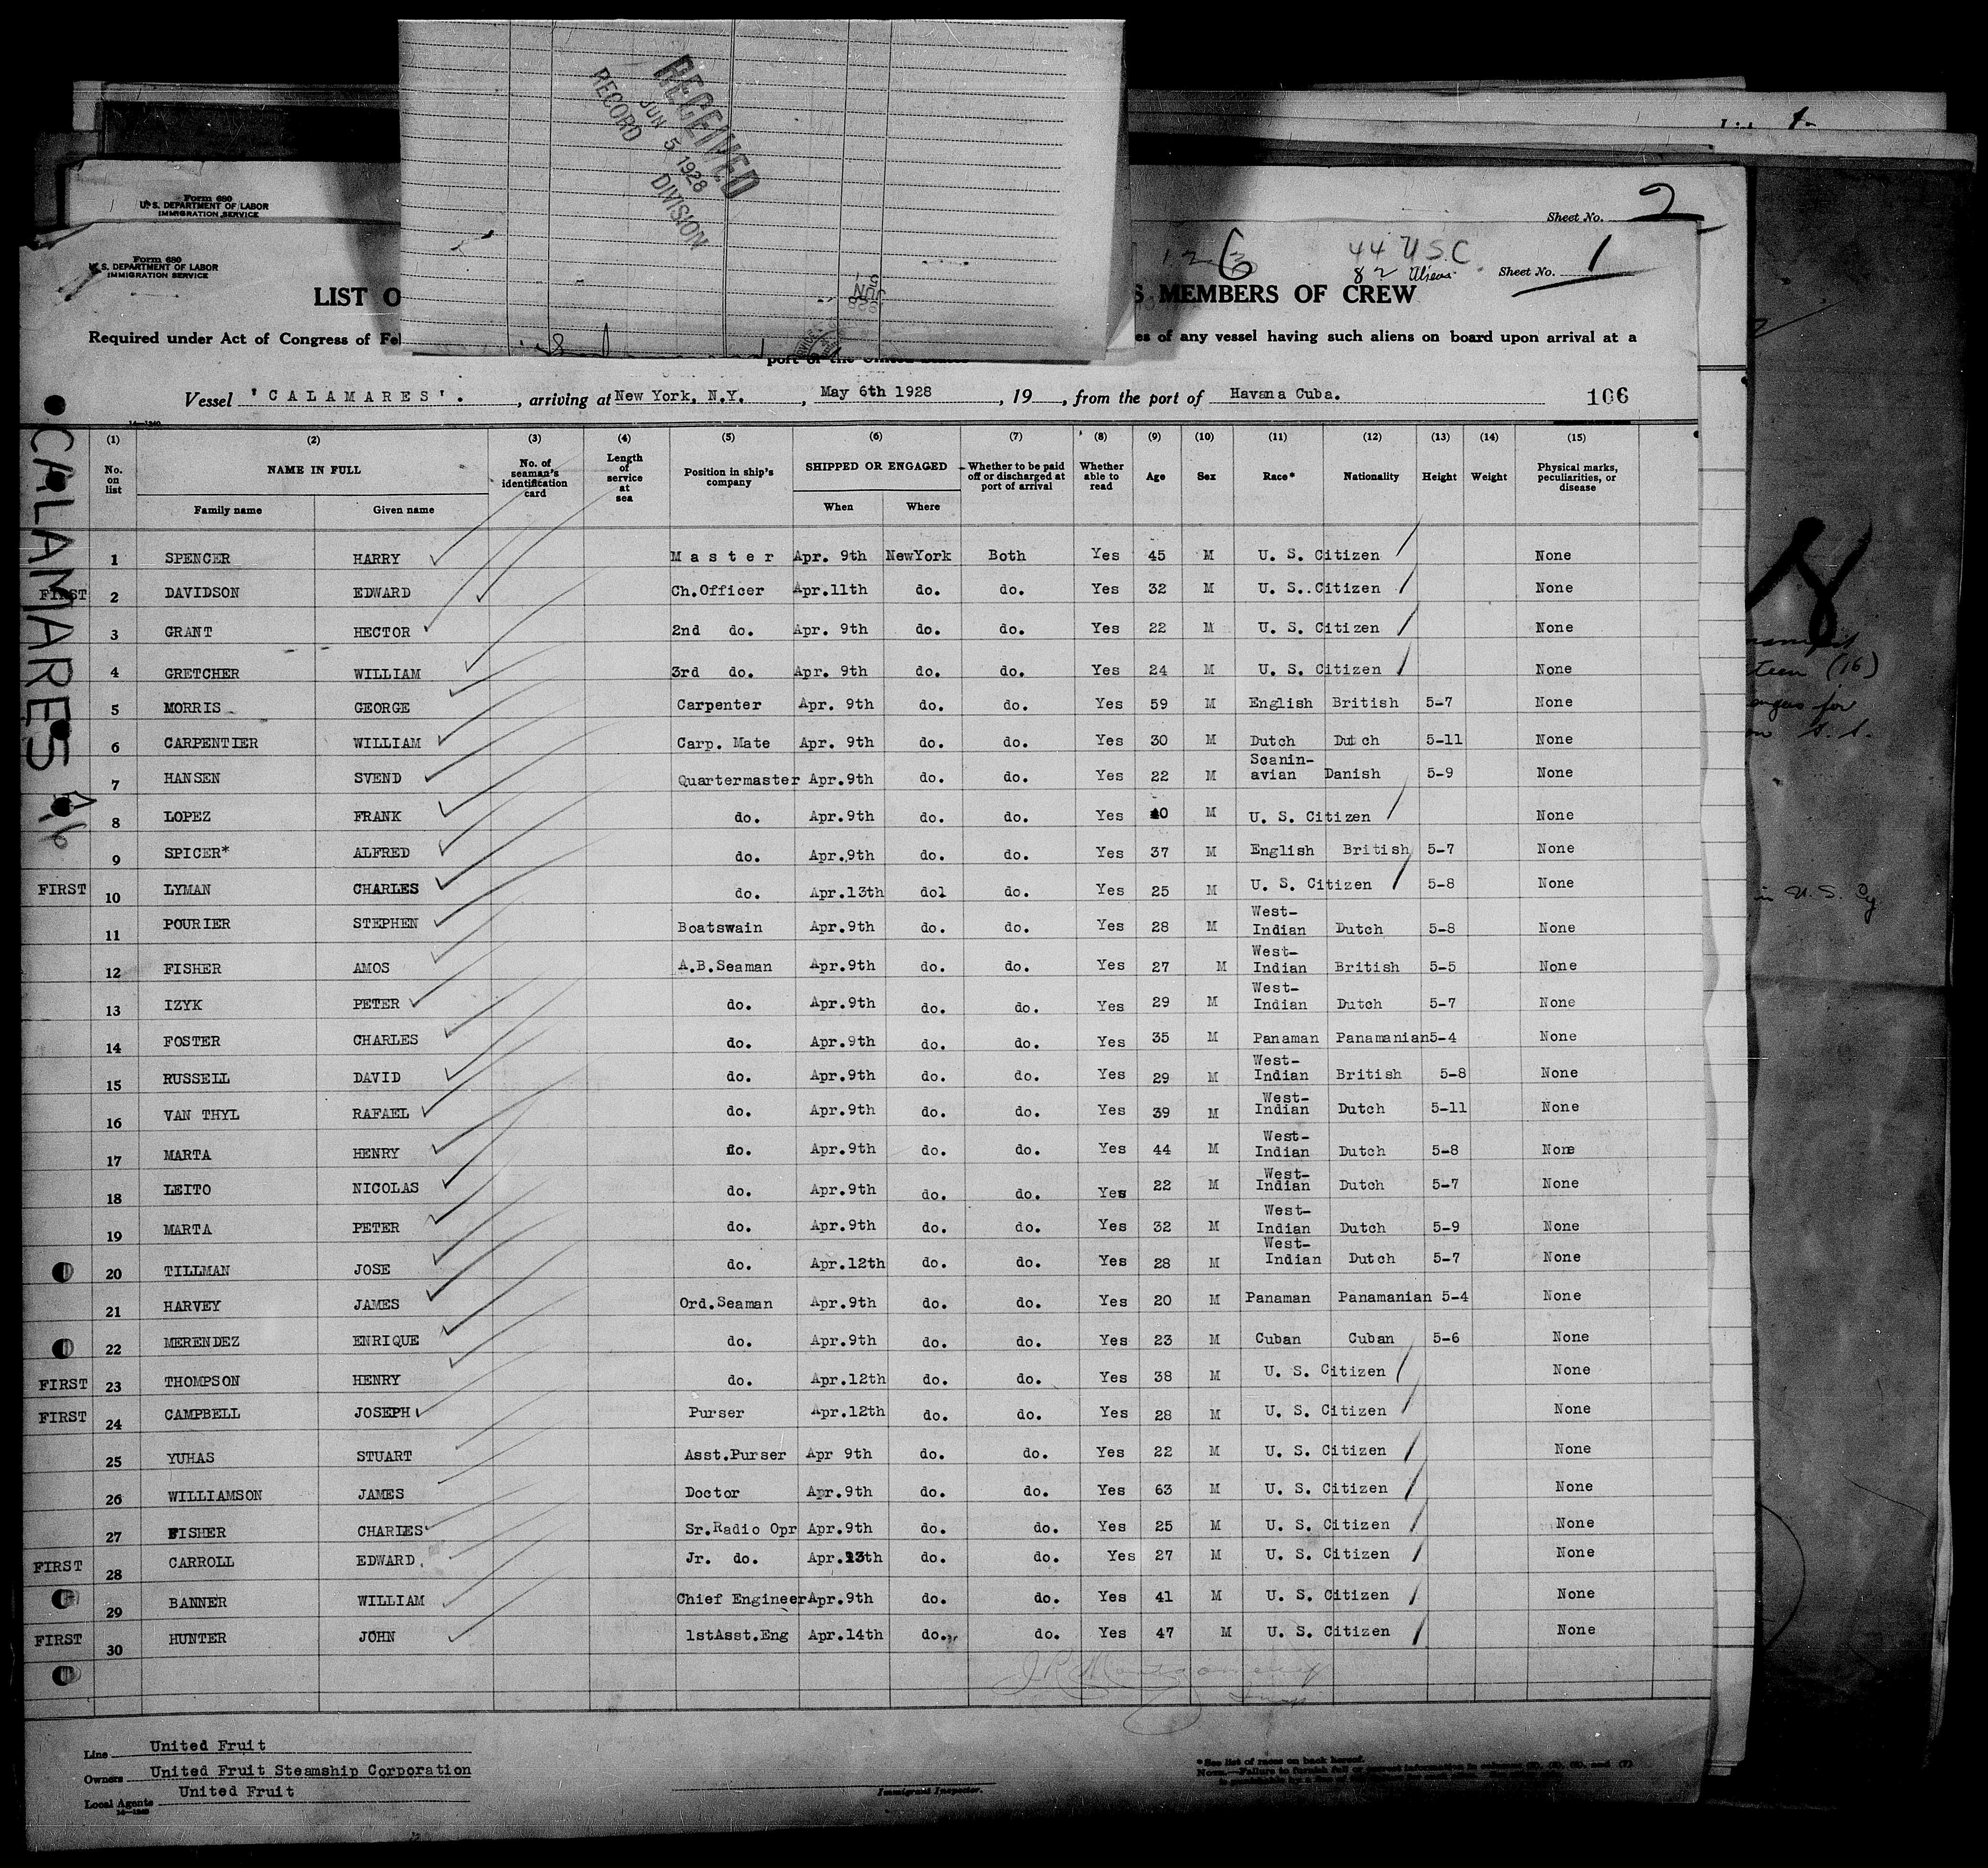 RECEIVED
JUN 5 1928
RECORD DIVISION
Form 680
U. S. DEPARTMENT OF LABOR
IMMIGRATION SERVICE
Sheet No. 2
Form 680
U. S. DEPARTMENT OF LABOR
IMMIGRATION SERVICE
126
44 U S C
82 Aliens
Sheet No. 1
LIST O
S MEMBERS OF CREW
Required under Act of Congress of Fe
es of any vessel having such aliens on board upon arrival at a
port of the United States
Vessel 'CALAMARES'. , arriving at New York, N.Y. , May 6th 1928 , 19 , from the port of Havana Cuba. 106
CALAMARES
(1) (2) (3) (4) (5) (6) (7) (8) (9) (10) (11) (12) (13) (14) (15)
No. on list NAME IN FULL No. of seaman's identification card Length of service at sea Position in ship's company SHIPPED OR ENGAGED Whether to be paid off or discharged at port of arrival Whether able to read Age Sex Race* Nationality Height Weight Physical marks, peculiarities, or disease
Family name Given name When Where
1 SPENCER HARRY Master Apr. 9th NewYork Both Yes 45 M U. S. Citizen None
FIRST 2 DAVIDSON EDWARD Ch.Officer Apr.11th do. do. Yes 32 M U. S..Citizen None
3 GRANT HECTOR 2nd do. Apr. 9th do. do. Yes 22 M U. S. Citizen None
4 GRETCHER WILLIAM 3rd do. Apr. 9th do. do. Yes 24 M U. S. Citizen None
5 MORRIS GEORGE Carpenter Apr. 9th do. do. Yes 59 M English British 5-7 None
6 CARPENTIER WILLIAM Carp. Mate Apr. 9th do. do. Yes 30 M Dutch Dutch 5-11 None
7 HANSEN SVEND Quartermaster Apr.9th do. do. Yes 22 M Scanin-avian Danish 5-9 None
8 LOPEZ FRANK do. Apr.9th do. do. Yes 40 M U. S. Citizen None
9 SPICER* ALFRED do. Apr.9th do. do. Yes 37 M English British 5-7 None
FIRST 10 LYMAN CHARLES do. Apr.13th dol do. Yes 25 M U. S. Citizen 5-8 None
11 POURIER STEPHEN Boatswain Apr.9th do. do. Yes 28 M West-Indian Dutch 5-8 None
12 FISHER AMOS A.B.Seaman Apr.9th do. do. Yes 27 M West-Indian British 5-5 None
13 IZYK PETER do. Apr.9th do. do. Yes 29 M West-Indian Dutch 5-7 None
14 FOSTER CHARLES do. Apr.9th do. do. Yes 35 M Panaman Panamanian 5-4 None
15 RUSSELL DAVID do. Apr.9th do. do. Yes 29 M West-Indian British 5-8 None
16 VAN THYL RAFAEL do. Apr.9th do. do. Yes 39 M West-Indian Dutch 5-11 None
17 MARTA HENRY do. Apr.9th do. do. Yes 44 M West-Indian Dutch 5-8 None
18 LEITO NICOLAS do. Apr.9th do. do. Yes 22 M West-Indian Dutch 5-7 None
19 MARTA PETER do. Apr.9th do. do. Yes 32 M West-Indian Dutch 5-9 None
20 TILLMAN JOSE do. Apr.12th do. do. Yes 28 M West-Indian Dutch 5-7 None
21 HARVEY JAMES Ord.Seaman Apr.9th do. do. Yes 20 M Panaman Panamanian 5-4 None
22 MERENDEZ ENRIQUE do. Apr.9th do. do. Yes 23 M Cuban Cuban 5-6 None
FIRST 23 THOMPSON HENRY do. Apr.12th do. do. Yes 38 M U. S. Citizen None
FIRST 24 CAMPBELL JOSEPH Purser Apr.12th do. do. Yes 28 M U. S. Citizen None
25 YUHAS STUART Asst.Purser Apr 9th do. do. Yes 22 M U. S. Citizen None
26 WILLIAMSON JAMES Doctor Apr.9th do. do. Yes 63 M U. S. Citizen None
27 FISHER CHARLES Sr.Radio Opr Apr.9th do. do. Yes 25 M U. S. Citizen None
FIRST 28 CARROLL EDWARD. Jr. do. Apr.13th do. do. Yes 27 M U. S. Citizen None
29 BANNER WILLIAM Chief Engineer Apr.9th do. do. Yes 41 M U. S. Citizen None
FIRST 30 HUNTER JOHN 1stAsst.Eng Apr.14th do. do. Yes 47 M U. S. Citizen None
Line United Fruit
Owners United Fruit Steamship Corporation
Local Agents United Fruit
Immigrant Inspector.
*See list of races on back hereof.
(16)
in U.S. Cy